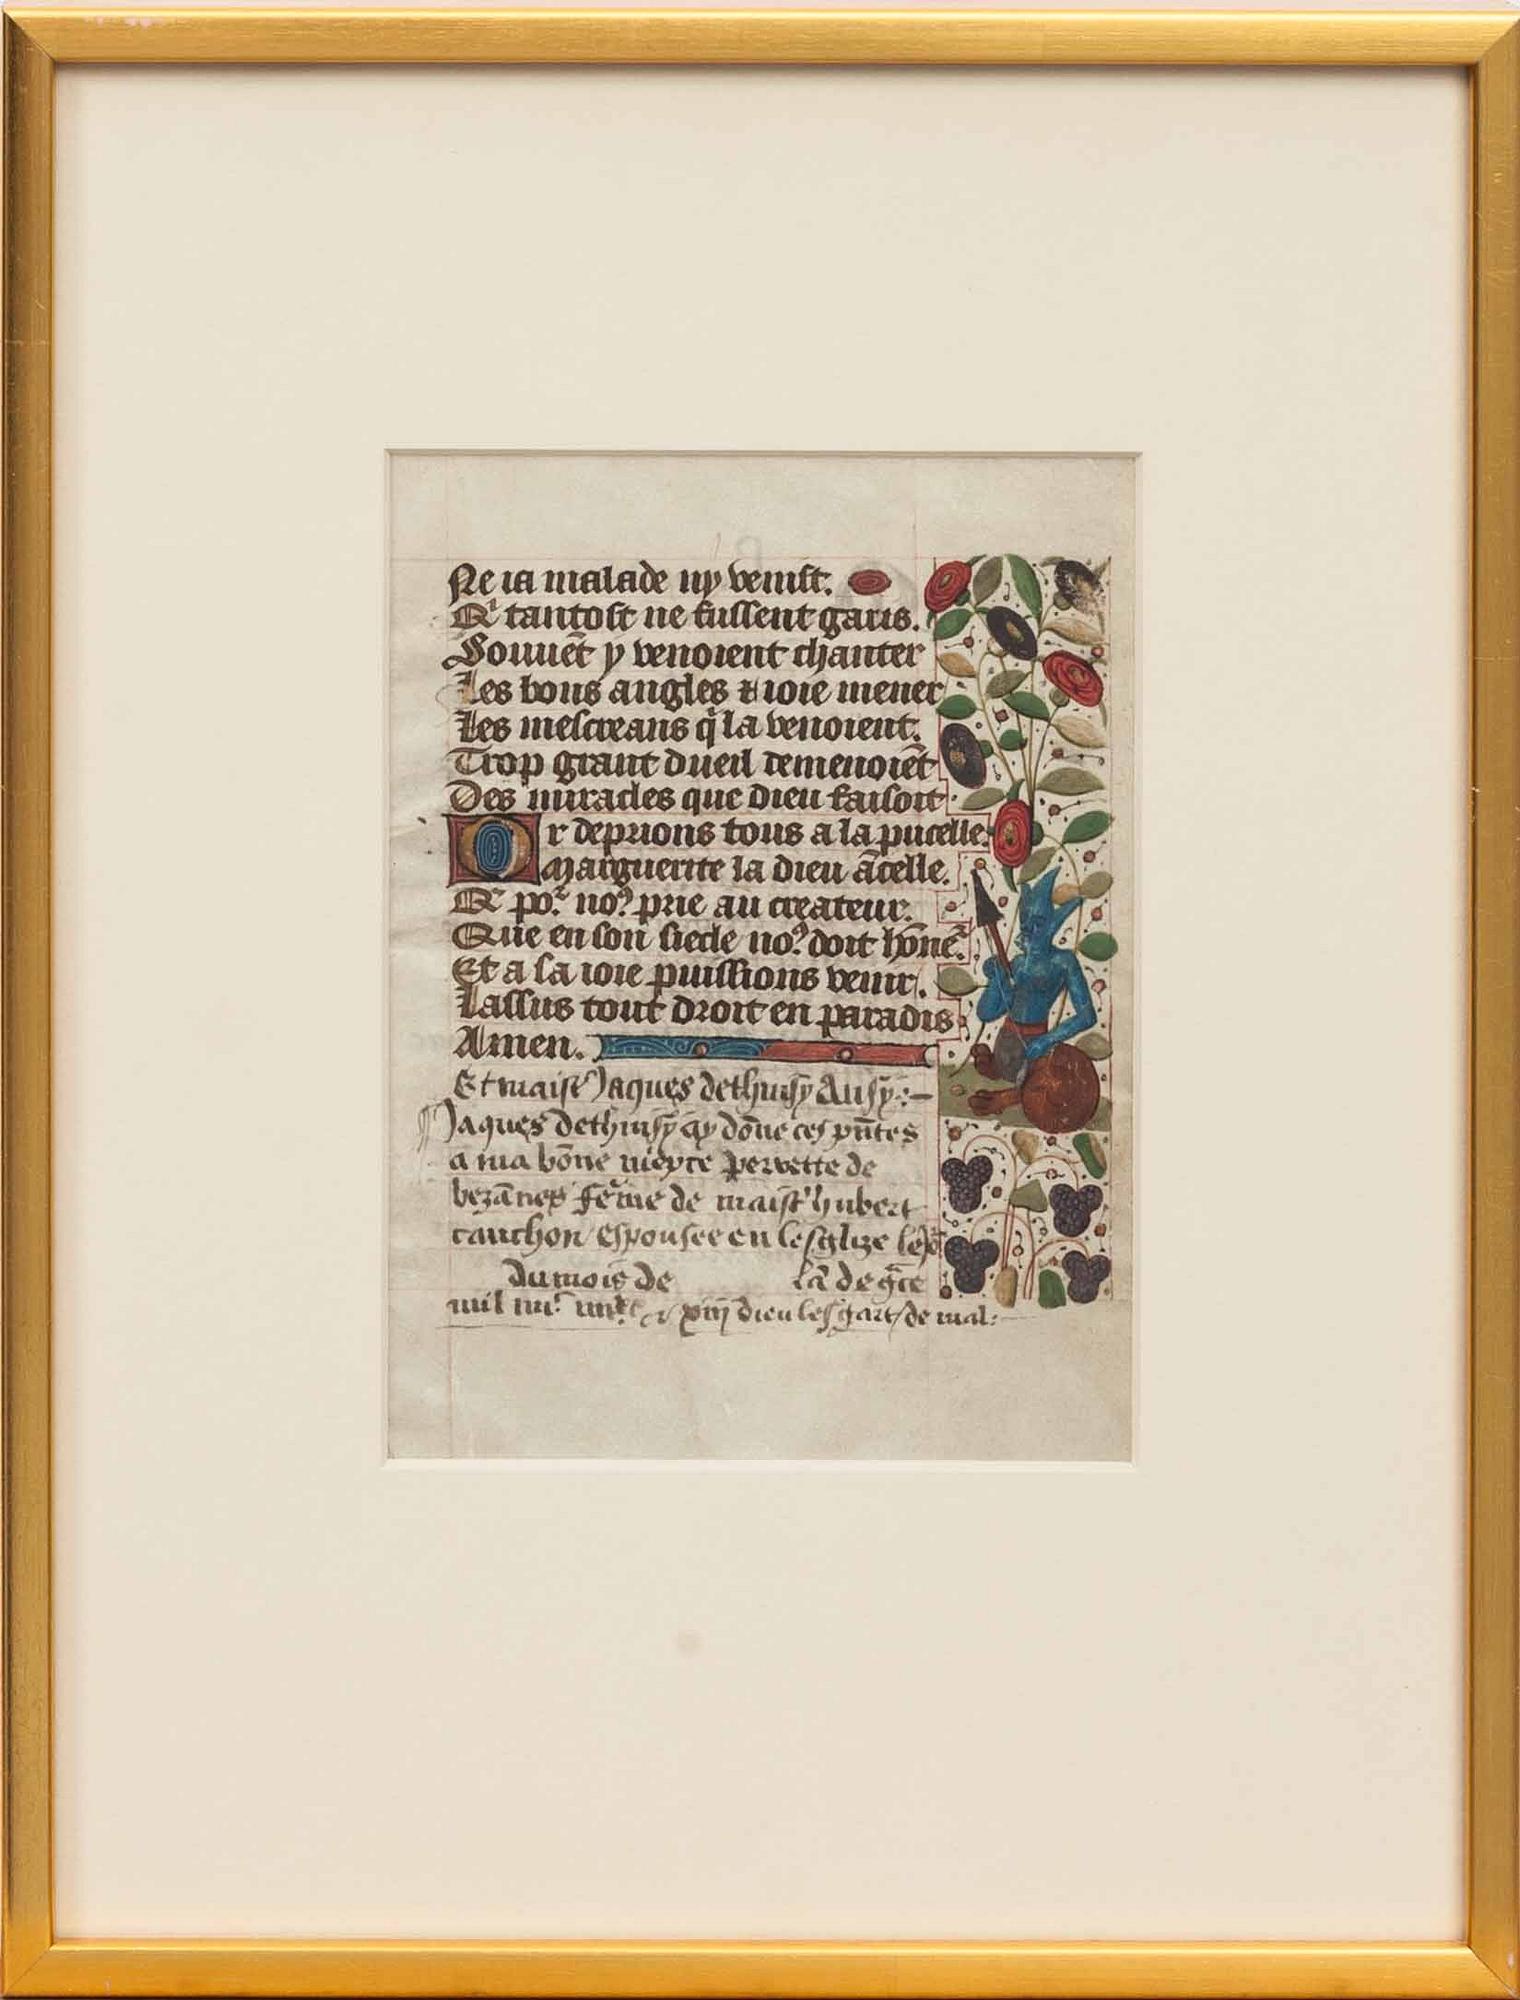 Ne ia malade ny venist.
Qͥ tantost ne fussent garis.
Souuēt y venoient chanter
Les bons angles ⁊ ioie mener
Les mescreans q̃ la venoient.
Trop grant dueil demenoiēt
Des miracles que dieu faisoit
Or deprions tous a la pucelle.
Marguerite la dieu ācelle.
Qͥ poᷣ noꝰ prie au createur.
Que en son siecle noꝰ doit hōneᷣ.
Et a sa ioie puissions venir.
Lassus tout droit en paradis
Amen.
Et maistᷣ Jaques dethuisy Aussy
Jaques dethuisy ay dōne ces pñtes
a ma bōne niepce perrette de
bezānes fēme de maistᷣ hubert
cauchon espousee en lesglize le
du mois de lā de gr̃ce
mil iiiiᶜ & xiiij dieu les gart de mal